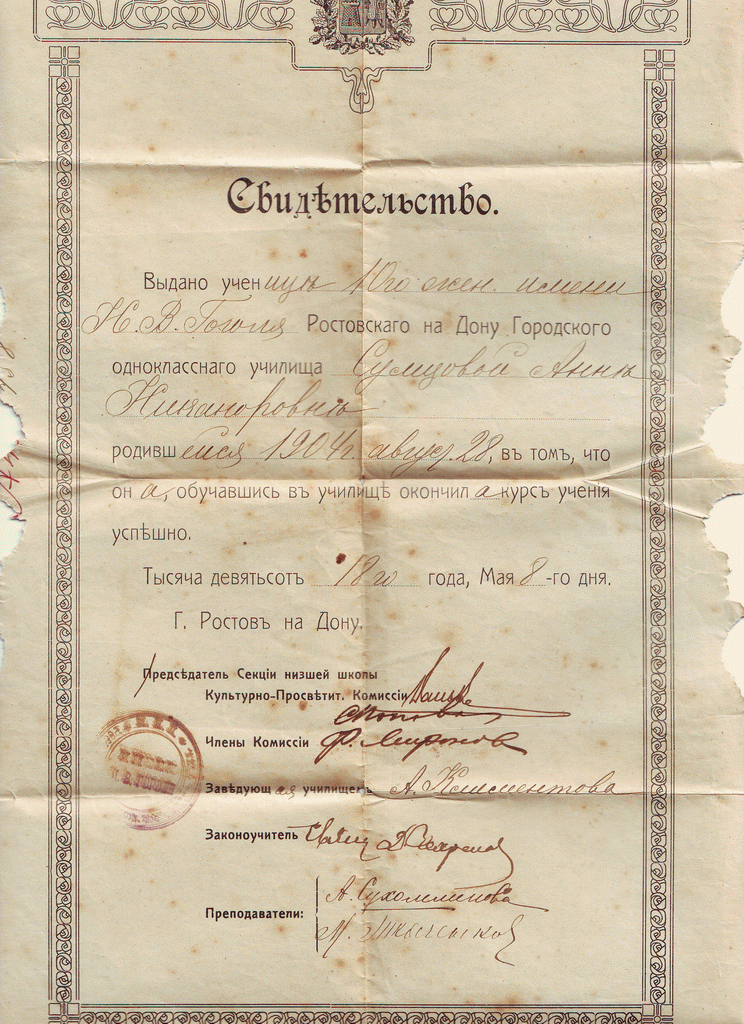 Свидѣтельство.
Выдано ученицѣ 10го жен. имени
Н. В. Гоголя Ростовскаго на Дону Городского
одноклаcснаго училища Сумцовой Аннѣ
Никаноровнѣ
родившейся 1904 г. авгус. 28, въ томъ, что
она, обучавшись въ училищѣ окончила курсъ ученія
успѣшно.
Тысяча девятьсотъ 18го года, Мая 8-го дня.
Г. Ростовъ на Дону.
Предсѣдатель Секціи низшей школы
Культурно-Просвѣтит. Комиссіи
Члены Комиссіи Ф. Миронов
Завѣдующая училищемъ А. Климентова
Законоучитель
А. Сухомлинова
Преподаватели: